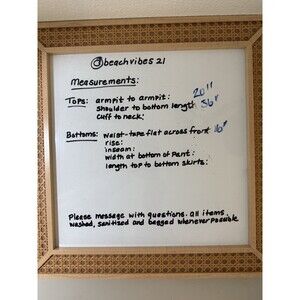 @beachvibes21
Measurements:
Tops: armpit to armpit: 20"
shoulder to bottom length: 36"
cuff to neck:
Bottoms: waist-tape flat across front 16"
rise:
inseam:
width at bottom of pant:
length top to bottom skirts:
Please message with questions. all items
washed, sanitized and bagged whenever possible